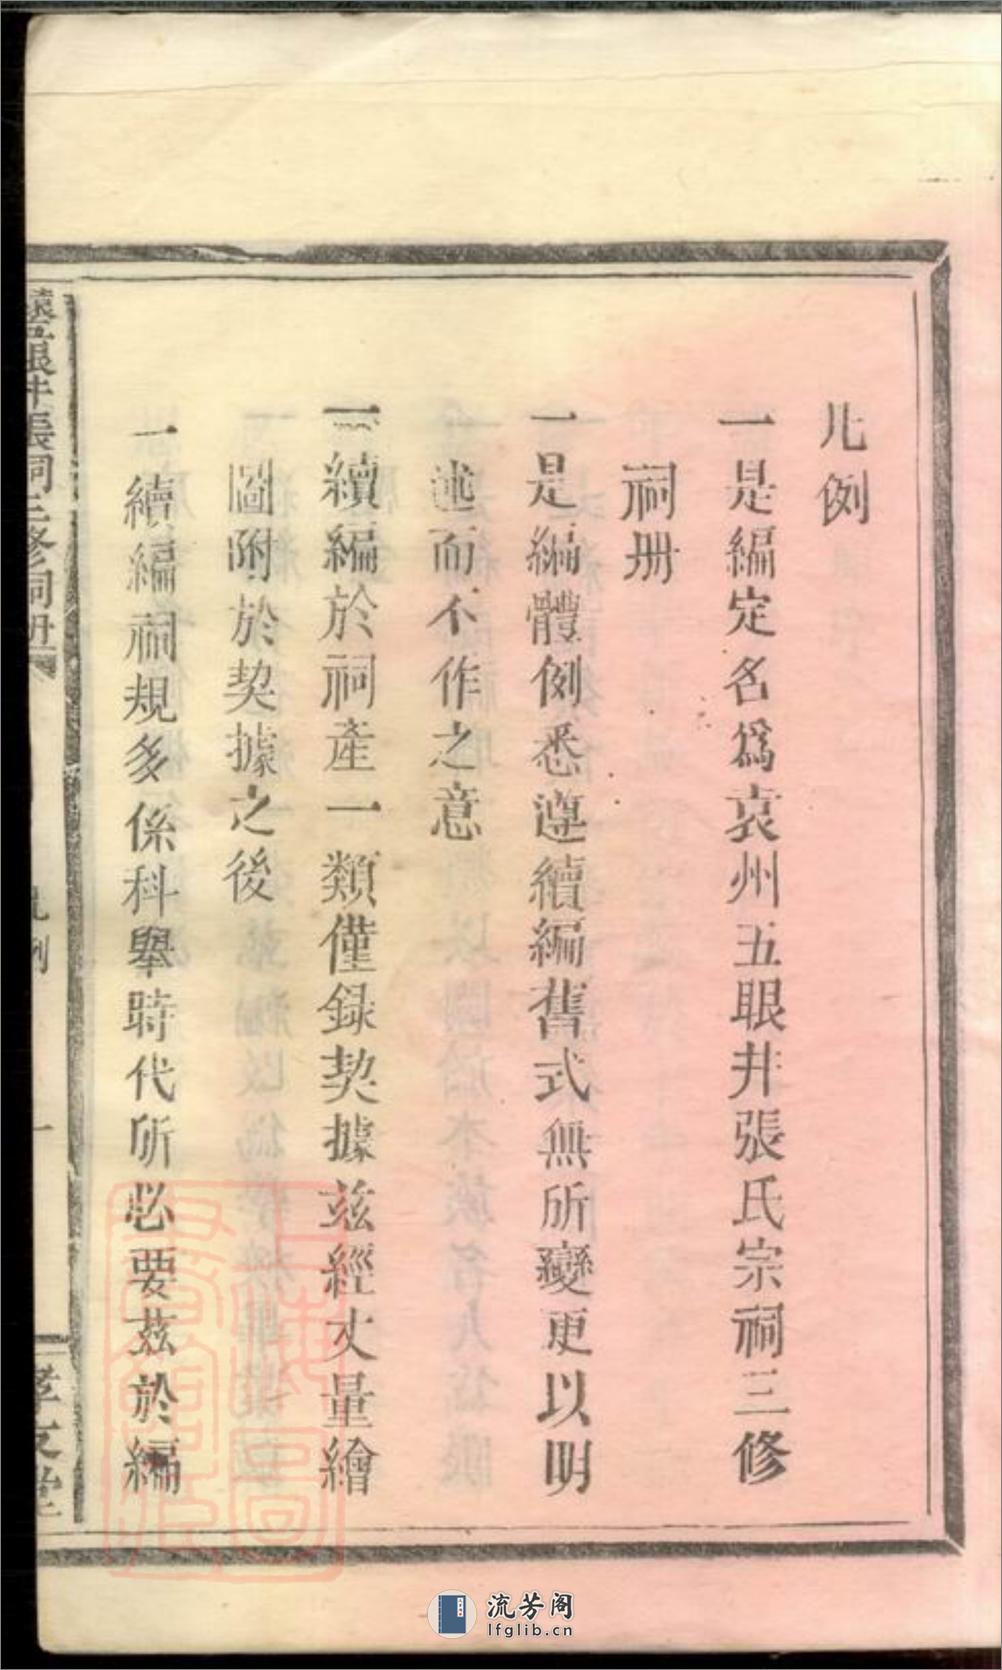 凡例
一是編定名爲袁州五眼井張氏宗祠三修
祠册
一是編體例悉遵續編舊式無所變更以明
述而不作之意
一續編於祠產一類僅録契據兹經丈量繪
圖附於契據之後
一續編祠規多係科舉時代所必要兹於編
凡例
一
孝友堂
流芳阁
lfglib.cn